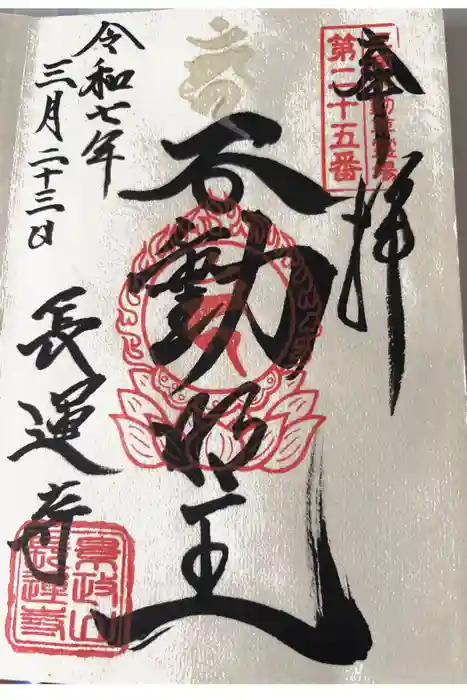 奉拝
第二十五番
不動明王
令和七年
三月二十三日
長運寺
景政山
長運寺